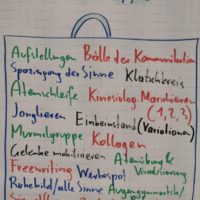 Aufstellungen Bälle der Kommunikation
Spaziergang der Sinne Klatschkreis
Atemschleife Kinesiolog. Marschieren
(1,2,3)
Jonglieren Einbeinstand (Variationen)
Murmelgruppe Kollagen
Gelenke mobilisieren Atemübung &
Freewriting Werbespot Visualisierung
Ruhebild/alle Sinne Augengymnastik/